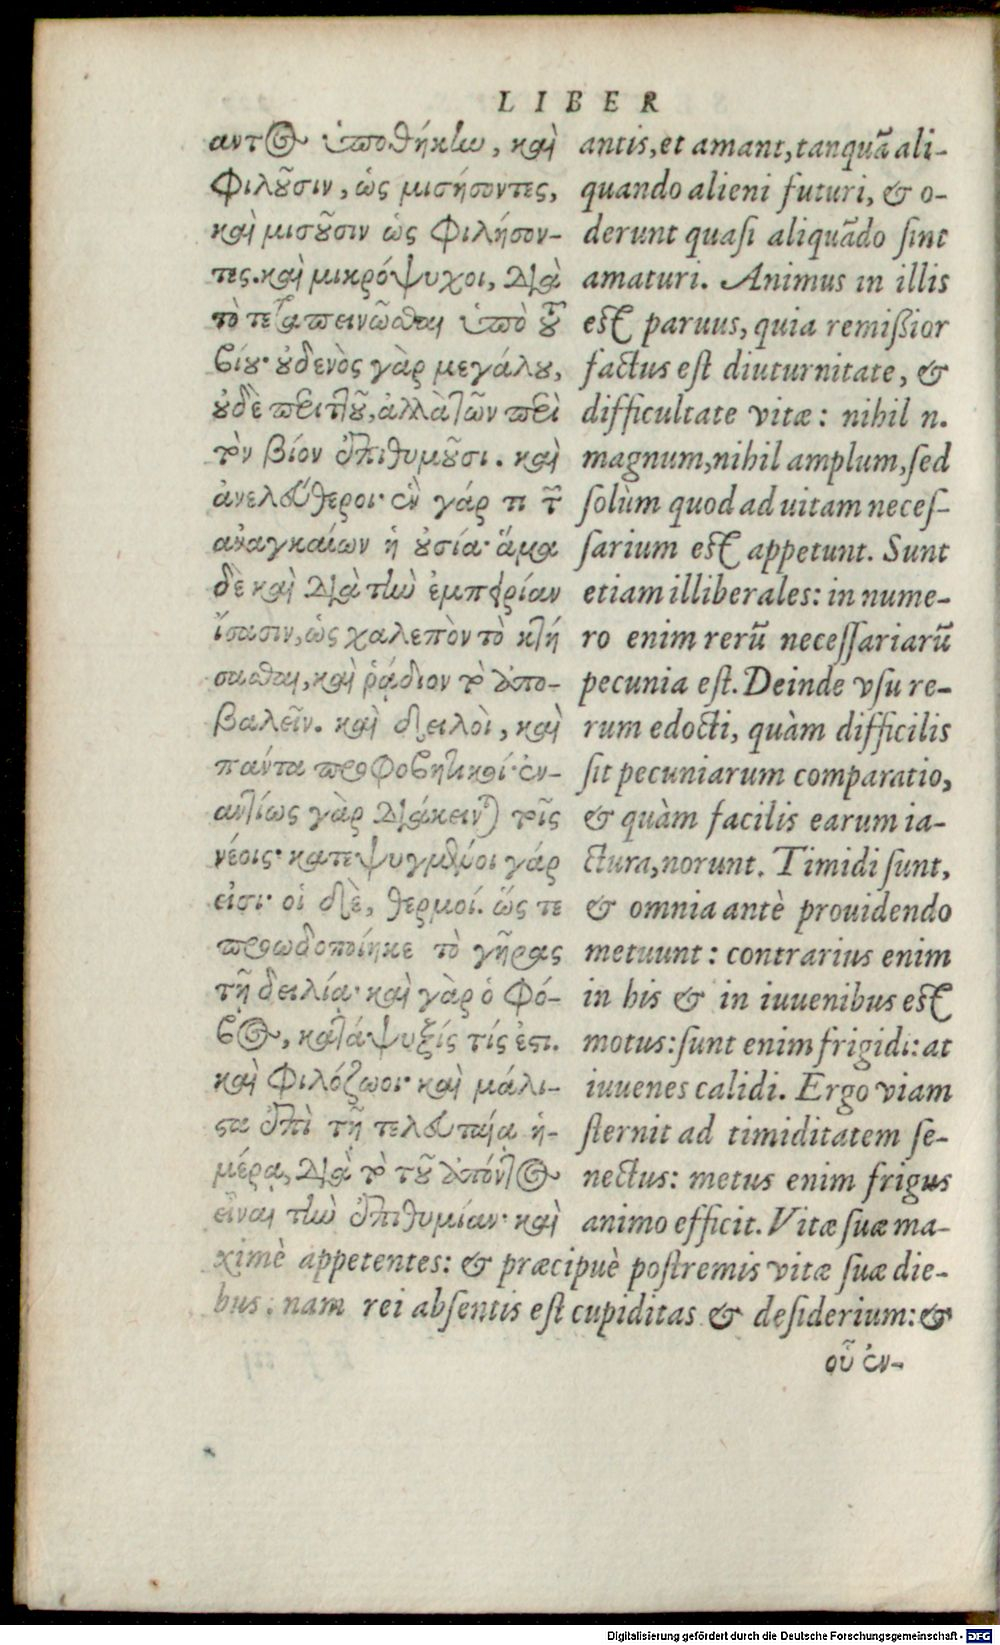 LIBER
αντος ὑποθήκην, καὶ
φιλοῦσιν, ὡς μισήσοντες,
καὶ μισοῦσιν ὡς φιλήσον-
τες. καὶ μικρόψυχοι, διὰ
τὸ τεταπεινῶσθαι ὑπὸ τοῦ
βίου· οὐδενὸς γὰρ μεγάλου,
οὐδὲ περιττοῦ, ἀλλὰ τῶν περὶ
τὸν βίον ἐπιθυμοῦσι. καὶ
ἀνελεύθεροι· ἓν γάρ τι τῶν
ἀναγκαίων ἡ οὐσία· ἅμα
δὲ καὶ διὰ τὴν ἐμπειρίαν
ἴσασιν, ὡς χαλεπὸν τὸ κτή
σασθαι, καὶ ῥάδιον τὸ ἀπο-
βαλεῖν. καὶ δειλοὶ, καὶ
πάντα προφοβητικοί· ἐν-
αντίως γὰρ διάκεινται τοῖς
νέοις· κατεψυγμένοι γάρ
εἰσι· οἱ δὲ, θερμοί. ὥς τε
προωδοποίηκε τὸ γῆρας
τῇ δειλίᾳ· καὶ γὰρ ὁ φό-
βος, κατάψυξίς τίς ἐστι.
καὶ φιλόζωοι· καὶ μάλι-
στα ἐπὶ τῇ τελευταίᾳ ἡ-
μέρᾳ, διὰ τὸ τοῦ ἀπόντος
εἶναι τὴν ἐπιθυμίαν· καὶ
antis, et amant, tanquā ali-
quando alieni futuri, & o-
derunt quasi aliquādo sint
amaturi. Animus in illis
est paruus, quia remißior
factus est diuturnitate, &
difficultate vitæ: nihil n.
magnum, nihil amplum, sed
solùm quod ad uitam neces-
sarium est appetunt. Sunt
etiam illiberales: in nume-
ro enim rerū necessariarū
pecunia est. Deinde vsu re-
rum edocti, quàm difficilis
sit pecuniarum comparatio,
& quàm facilis earum ia-
ctura, norunt. Timidi sunt,
& omnia antè prouidendo
metuunt: contrarius enim
in his & in iuuenibus est
motus: sunt enim frigidi: at
iuuenes calidi. Ergo viam
sternit ad timiditatem se-
nectus: metus enim frigus
animo efficit. Vitæ suæ ma-
ximè appetentes: & præcipuè postremis vitæ suæ die-
bus: nam rei absentis est cupiditas & desiderium: &
οὗ ἐν-
Digitalisierung gefördert durch die Deutsche Forschungsgemeinschaft - DFG